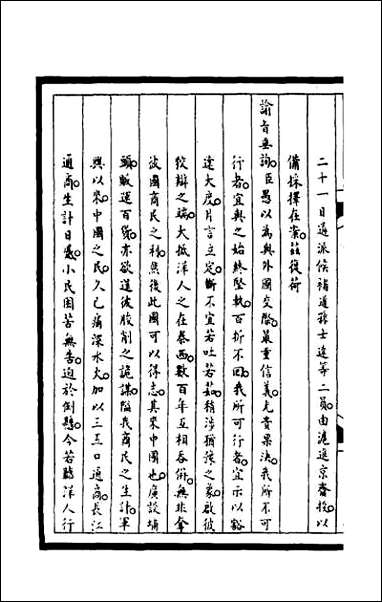 二十一日遴派候補道孫士達等二員由滬進京賫投以
備採擇在案茲復荷
諭旨垂詢臣愚以為與外國交際最重信義尤貴果決我所不可
行者宜與之始終堅執百折不回我所可行者宜示以豁
達大度片言立定斷不宜若吐若茹稍涉猶豫之象啟彼
狡辯之端大抵洋人之在泰西數百年互相吞併無非奪
彼國商民之利然後此國可以得志其來中國也廣設埔
頭販運百貨亦欲逞彼朘削之詭謀隘我商民之生計軍
興以來中國之民久已痛深水火加以三五口通商長江
通商生計日蹙小民困苦無告迫於倒懸今若聽洋人行